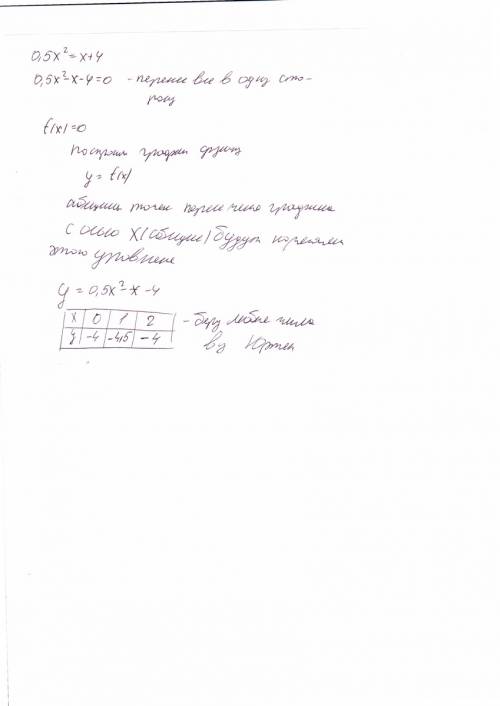 0,5x²=x+4
0,5x²-x-4=0 - перенес все в одну сто-
рону
f(x)=0
Построим график функц
y = f(x)
абсциссы точек пересечения графика
с осью X (абсцисс) будут корнями
этого уравнения
y = 0,5x²-x-4
x 0 1 2 - беру любые числа
y -4 -4,5 -4